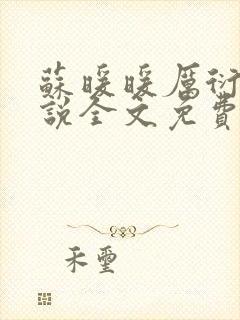 蘇暖暖厲衍
說全文免費
禾璽